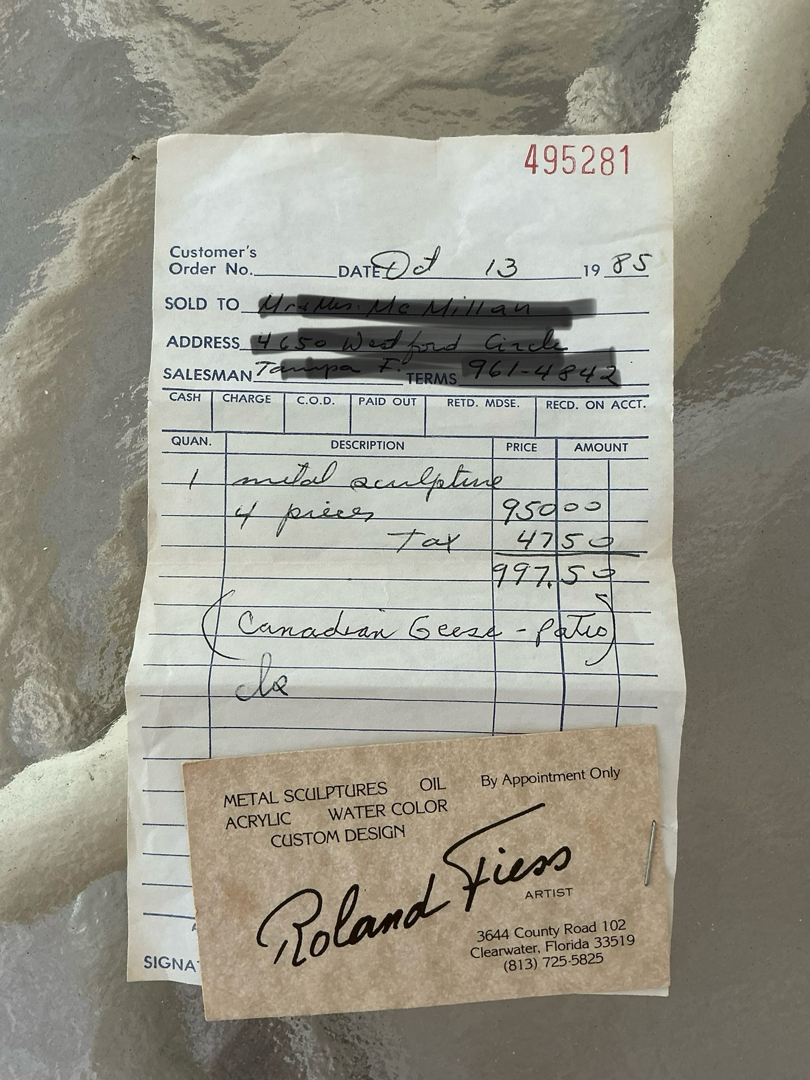 495281
Customer's
Order No. DATE Oct 13 19 85
SOLD TO
ADDRESS
SALESMAN TERMS
CASH CHARGE C.O.D. PAID OUT RETD. MDSE. RECD. ON ACCT.
QUAN. DESCRIPTION PRICE AMOUNT
1 metal sculpture
4 pieces 950 00
Tax 47 50
997.50
(Canadian Geese - patio)
METAL SCULPTURES OIL By Appointment Only
ACRYLIC WATER COLOR
CUSTOM DESIGN
Roland Fiess
ARTIST
3644 County Road 102
Clearwater, Florida 33519
(813) 725-5825
SIGNA